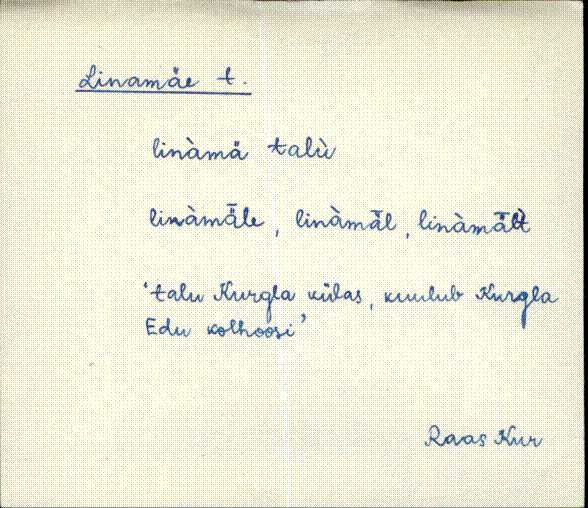 Linamäe t.
linàmä talù
linàmǟle, linàmǟl, linàmǟlt
'talu Kurgla külas, kuulub Kurgla
Edu kolhoosi'
Raas Kur